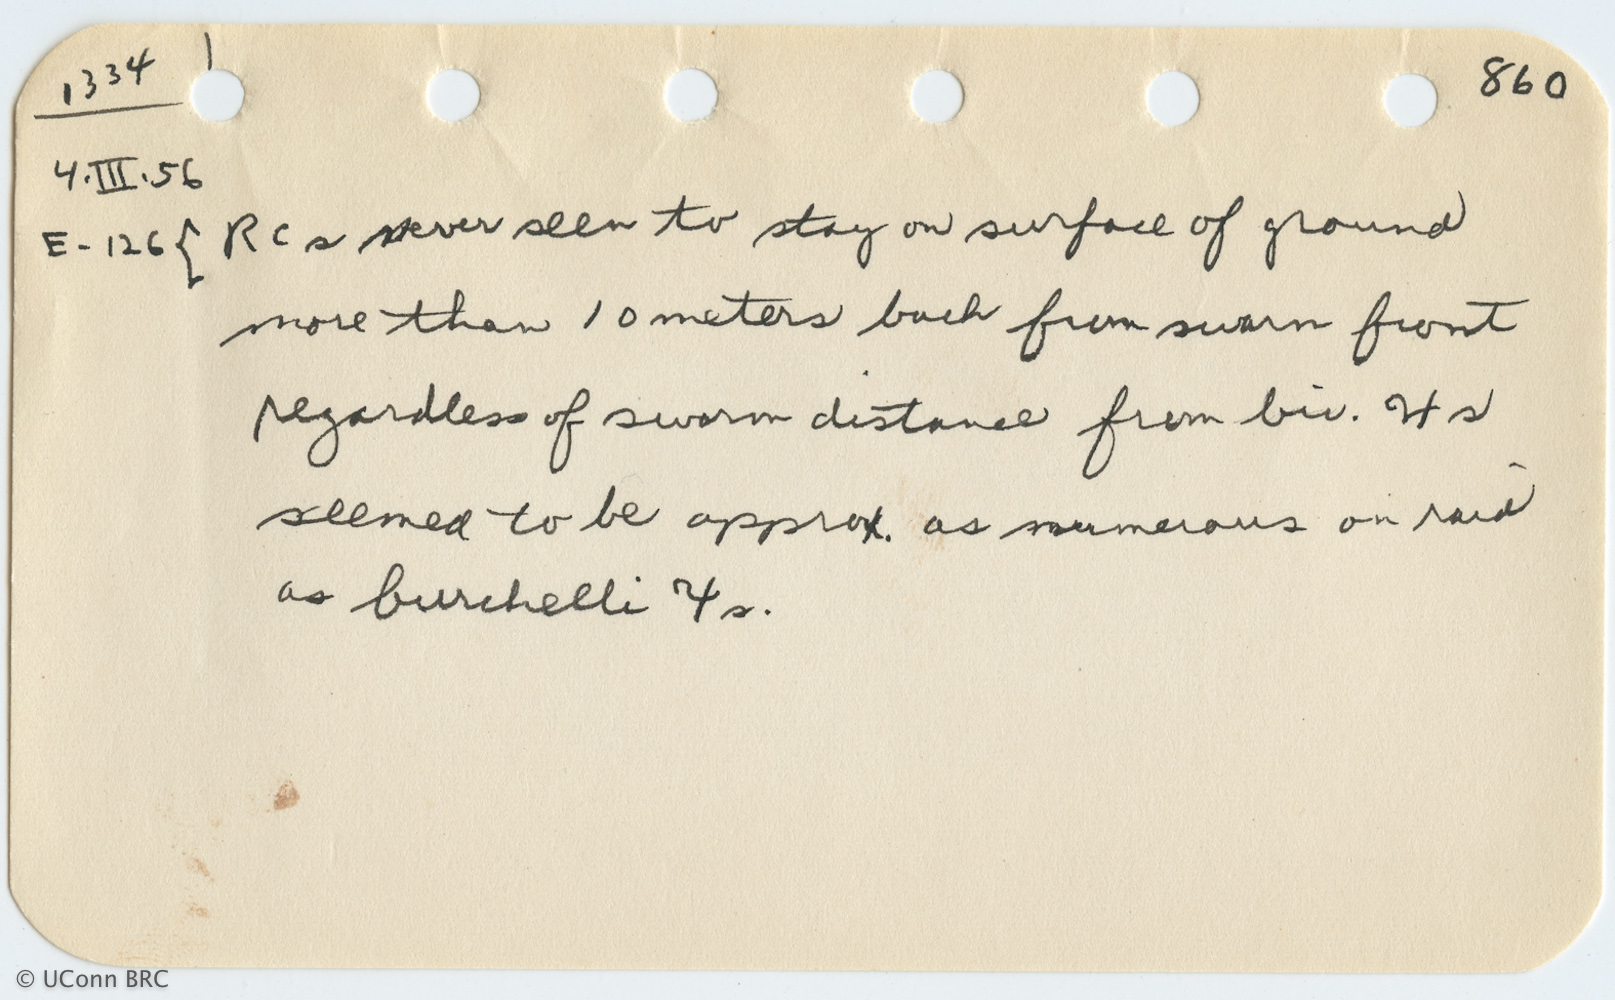 1334
860
4.III.56
E-126 { RCs never seen to stay on surface of ground
more than 10 meters back from swarm front
regardless of swarm distance from biv. ♃s
seemed to be approx. as numerous on raid
as burchelli ♃s.
© UConn BRC